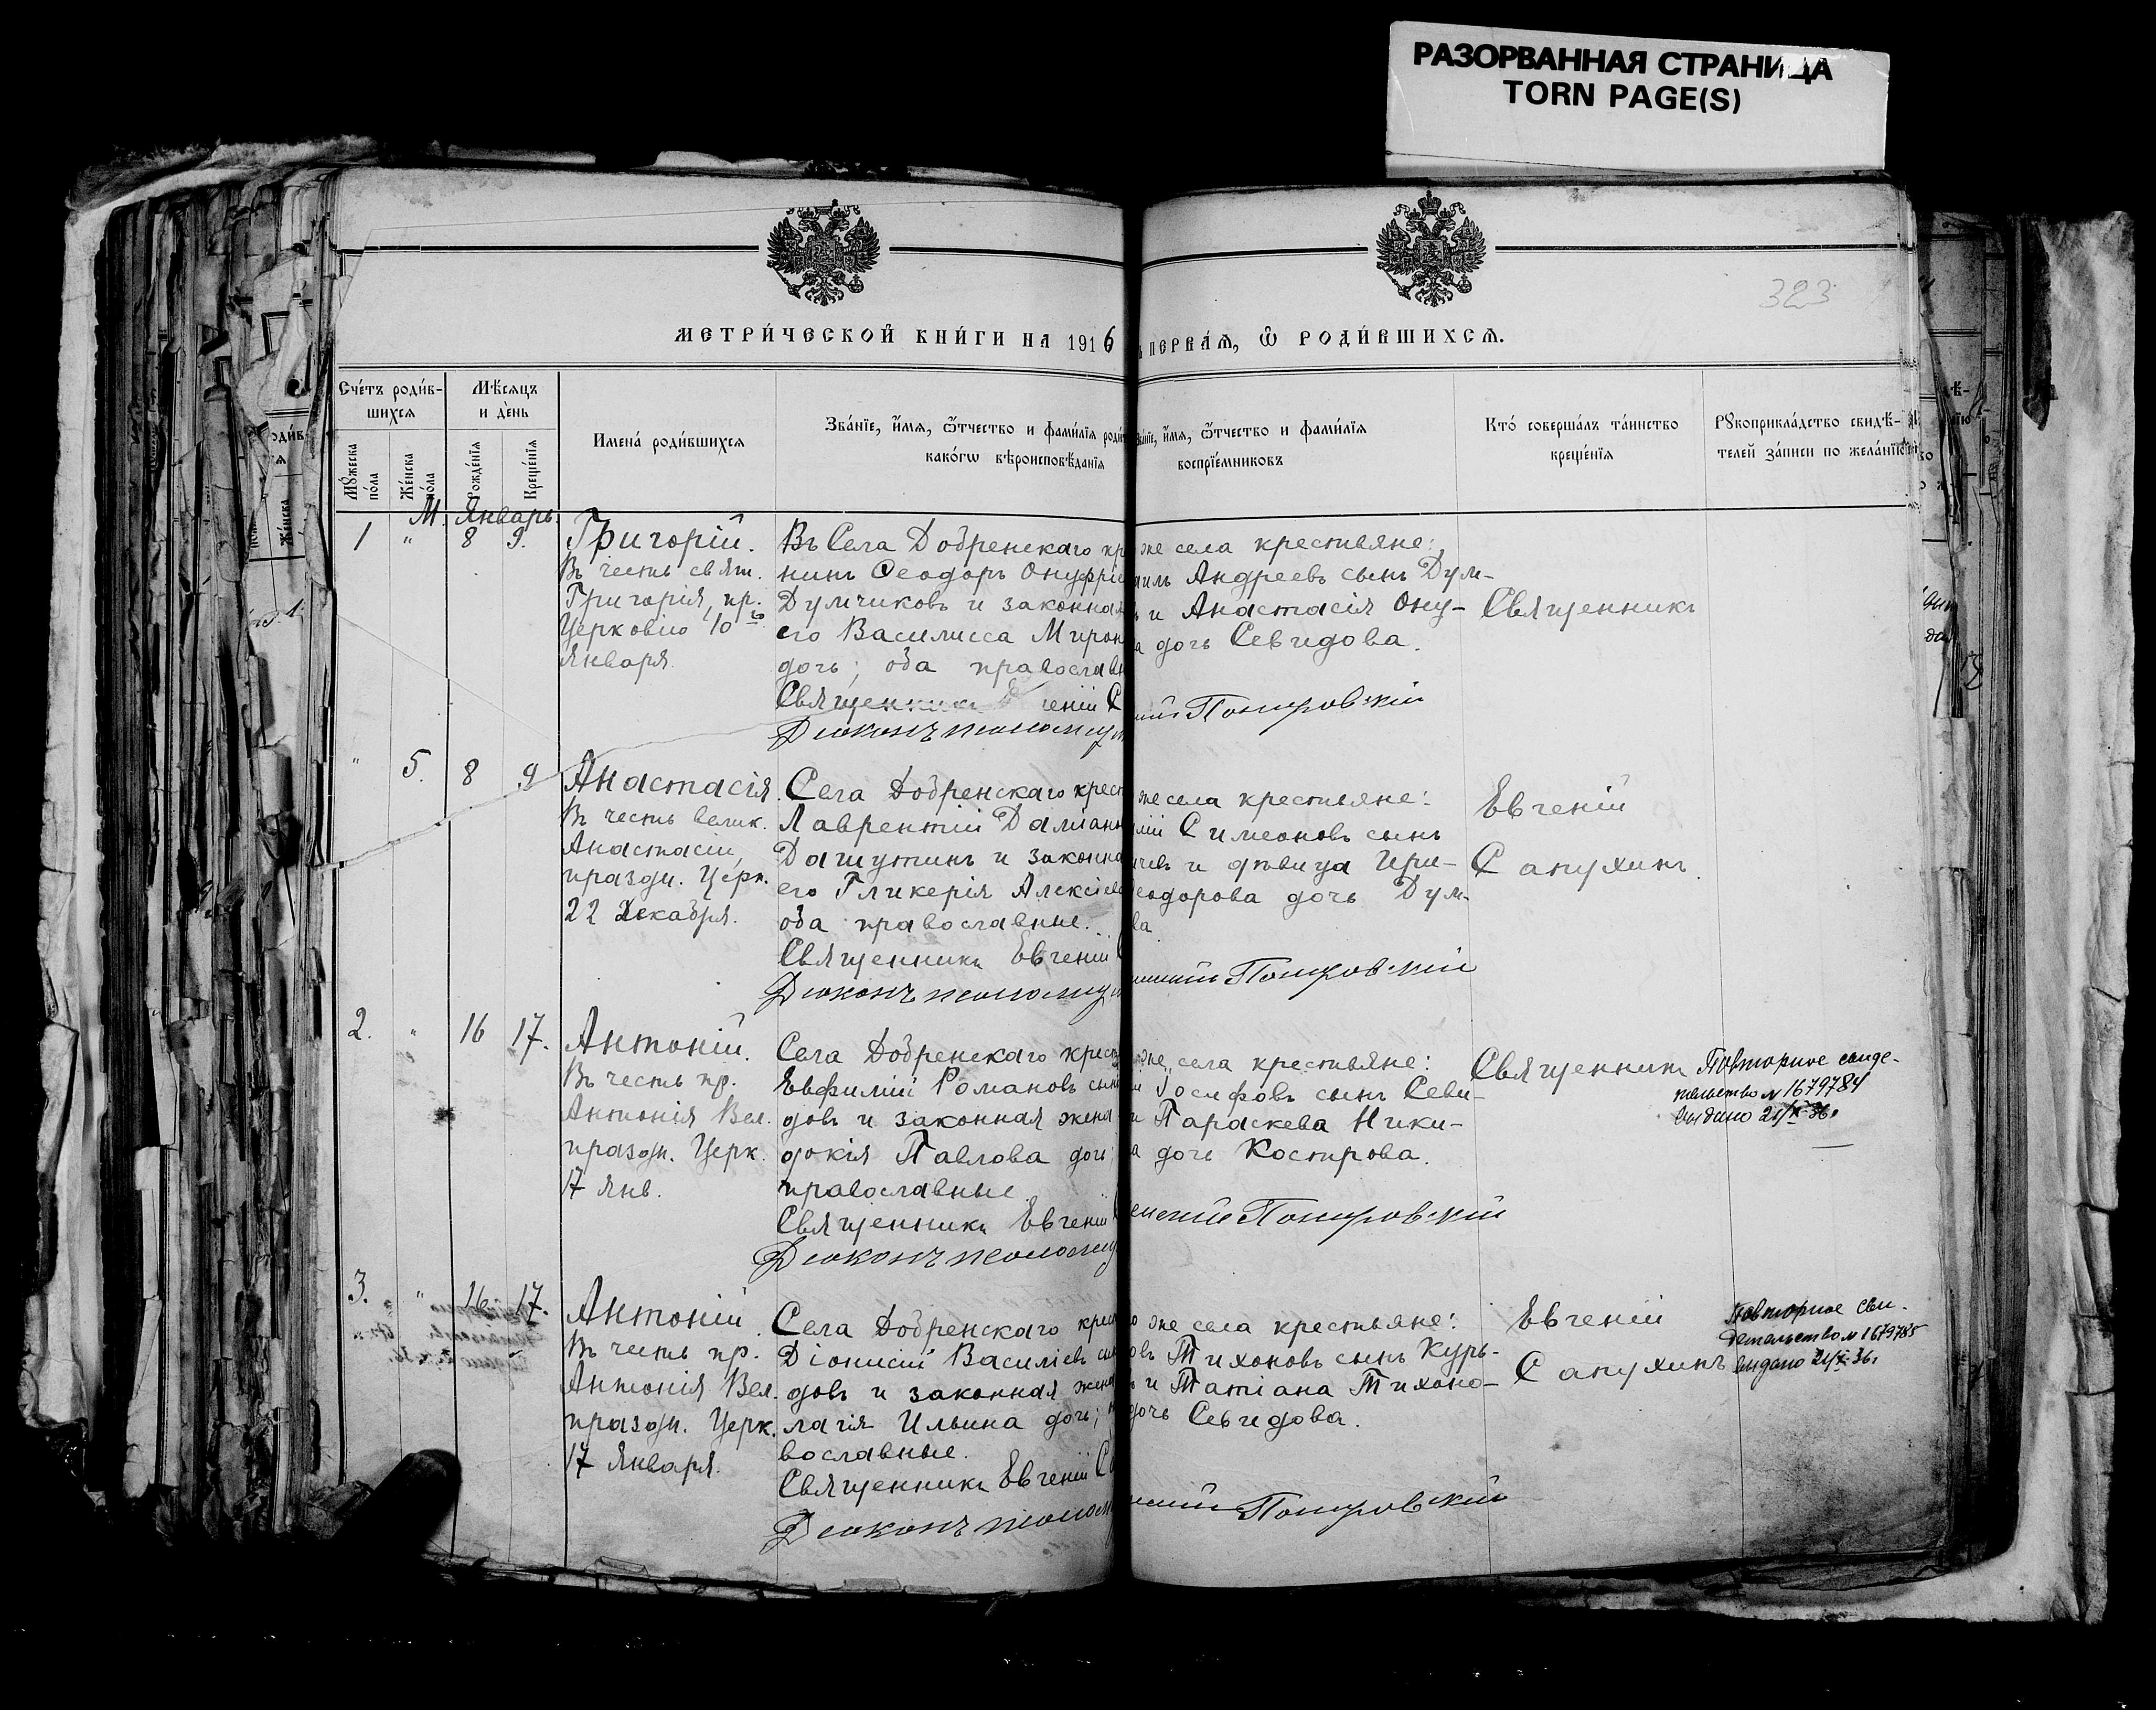 РАЗОРВАННАЯ СТРАНИЦА
TORN PAGE(S)
323
МЕТРИ́ЧЕСКОЙ КНИ́ГИ НА 1916
ПЕРВАѦ, Ѿ РОДИ́ВШИХСѦ.
Сче́тъ роди́в-
шихсѧ
Мꙋ́жеска
по́ла
Же́нска
по́ла
Мѣ́сѧцъ
и де́нь
Рожде́нїѧ
Креще́нїѧ
Имена́ роди́вшихсѧ
Зва́нїе, и҆́мѧ, ѻ҆́тчество и фами́лїѧ роди
како́гѡ вѣроисповѣ́данїѧ
и҆́мѧ, ѻ҆́тчество и фами́лїѧ
воспрїе́мниковъ
Кто́ соверша́лъ та́инство
креще́нїѧ
Рꙋкоприкла́дство свидѣ́-
телей за́писи по жела́нїю
М. Январь.
1 " 8 9.
Григорій.
Въ честь свят.
Григорія, пр.
Церковію 10го
Января.
Въ Села Добренскаго кр
нинъ Ѳеодоръ Онуфріе
Думчиковъ и законная
его Василисса Мирон
дочь; оба православн
Священникъ геній С
Діаконъ псалом
же села крестьяне:
илъ Андреевъ сынъ Дум-
и Анастасія Ону-
а дочь Севидова.
Покровскій
Священникъ
" 5. 8 9
Анастасія.
Въ честь велик.
Анастасіи,
праздн. Церк.
22 Декабря.
Села Добренскаго крест
Лаврентій Даміано
Дашутинъ и законна
его Гликерія Алексіев
оба православные.
Священникъ Евгеній
Діаконъ псалом
же села крестьяне:
лій Симеоновъ сынъ
ичевъ и дѣвица Ири-
еодорова дочь Дум-
ва
Покровскій
Евгеній
Сапухинъ.
2. " 16 17.
Антоній.
Въ честь пр.
Антонія Вел.
праздн. Церк.
17 Янв.
Села Добренскаго крест
Евфимій Романовъ сын
довъ и законная жена
докія Павлова дочь;
православные.
Священникъ Евгеній
Діаконъ псалом
же села крестьяне:
Іосифовъ сынъ Севи-
и Параскева Ники-
а дочь Кострова.
Покровскій
Священникъ
Повторное свиде-
тельство № 1679784
выдано 21/X 36г
3. " 16 17.
Антоній.
Въ честь пр.
Антонія Вел.
праздн. Церк.
17 Января.
Села Добренскаго крес
Діонисій Василіевъ сын
довъ и законная жена
лагія Ильина дочь;
вославные.
Священникъ Евгеній С
Діаконъ псалом
о же села крестьяне:
овъ Тихоновъ сынъ Курь-
и Татіана Тихоно-
дочь Севидова.
Покровскій
Евгеній
Сапухинъ
Повторное сви-
детельство № 1679785
выдано 21/X 36г